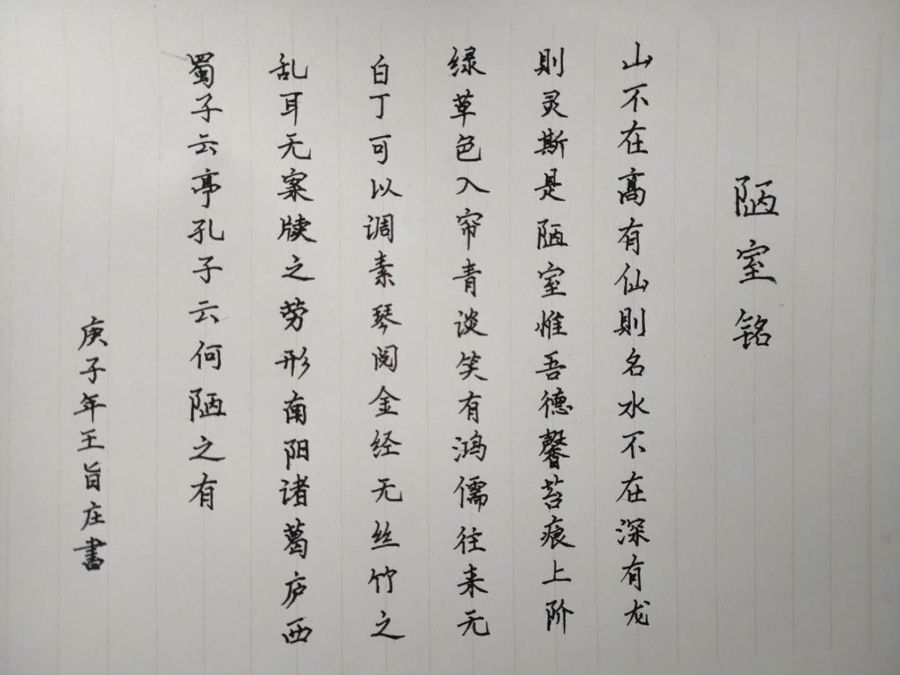 陋室铭
山不在高有仙则名水不在深有龙
则灵斯是陋室惟吾德馨苔痕上阶
绿草色入帘青谈笑有鸿儒往来无
白丁可以调素琴阅金经无丝竹之
乱耳无案牍之劳形南阳诸葛庐西
蜀子云亭孔子云何陋之有
庚子年王旨庄書